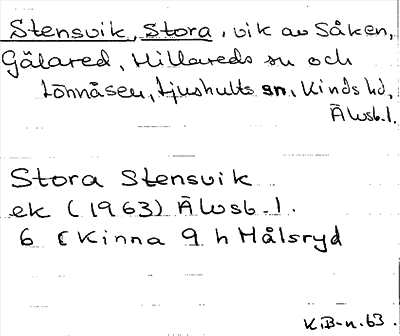 Stensvik, Stora, vik av Såken,
Gälared, Hillareds sn och
Lönnåsen, Ljushults sn, Kinds hd,
Älvsb.l.
Stora Stensvik
ek (1963) Älvsb.l.
6 C Kinna 9 h Målsryd
K.B-n.63.